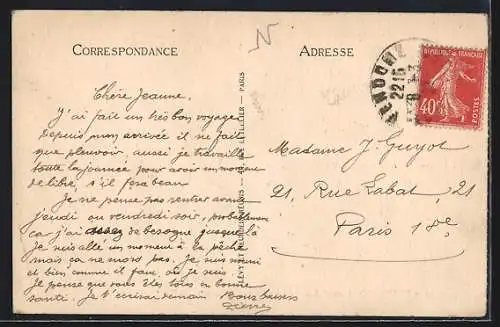 CORRESPONDANCE
ADRESSE
N
Chère Jeanne.
J'ai fait un très bon voyage
Depuis mon arrivée il ne fait
que pleuvoir, aussi je travaille
toute la journée pour avoir un moment
de libre, s'il fera beau
Je ne pense pas rentrer avant
jeudi ou vendredi soir, probablement
car j'ai assez de besogne jusque là
Je suis allé un moment à la pêche
mais ça ne mord pas. Je suis
et bien comme il faut, où je suis.
Je pense que vous êtes tous en bonne
santé. Je t'écrirai demain Bons baisers
Pierre
LÉVY ET NEURDEIN RÉUNIS
PARIS
22 15
RÉPUBLIQUE FRANÇAISE
40c
POSTES
Madame J. Guyot
21, Rue Labat, 21
Paris 18e